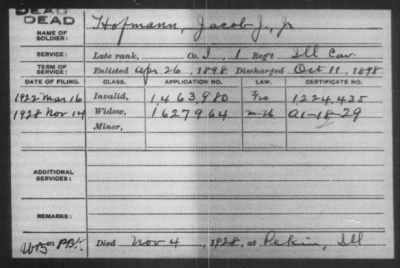 DEAD
DEAD
NAME OF SOLDIER: Hofmann, Jacob J., Jr
SERVICE: Late rank, Co. I, 1 Reg't Ill Cav
TERM OF SERVICE: Enlisted Apr 26, 1898 Discharged Oct 11, 1898
DATE OF FILING. CLASS. APPLICATION NO. LAW. CERTIFICATE NO.
1922 Mar 16 Invalid, 1,463,980 1,224,435
1928 Nov 14 Widow, 1627964 A1-18-29
Minor,
ADDITIONAL SERVICES:
REMARKS:
Died Nov 4, 1928, at Pekin, Ill